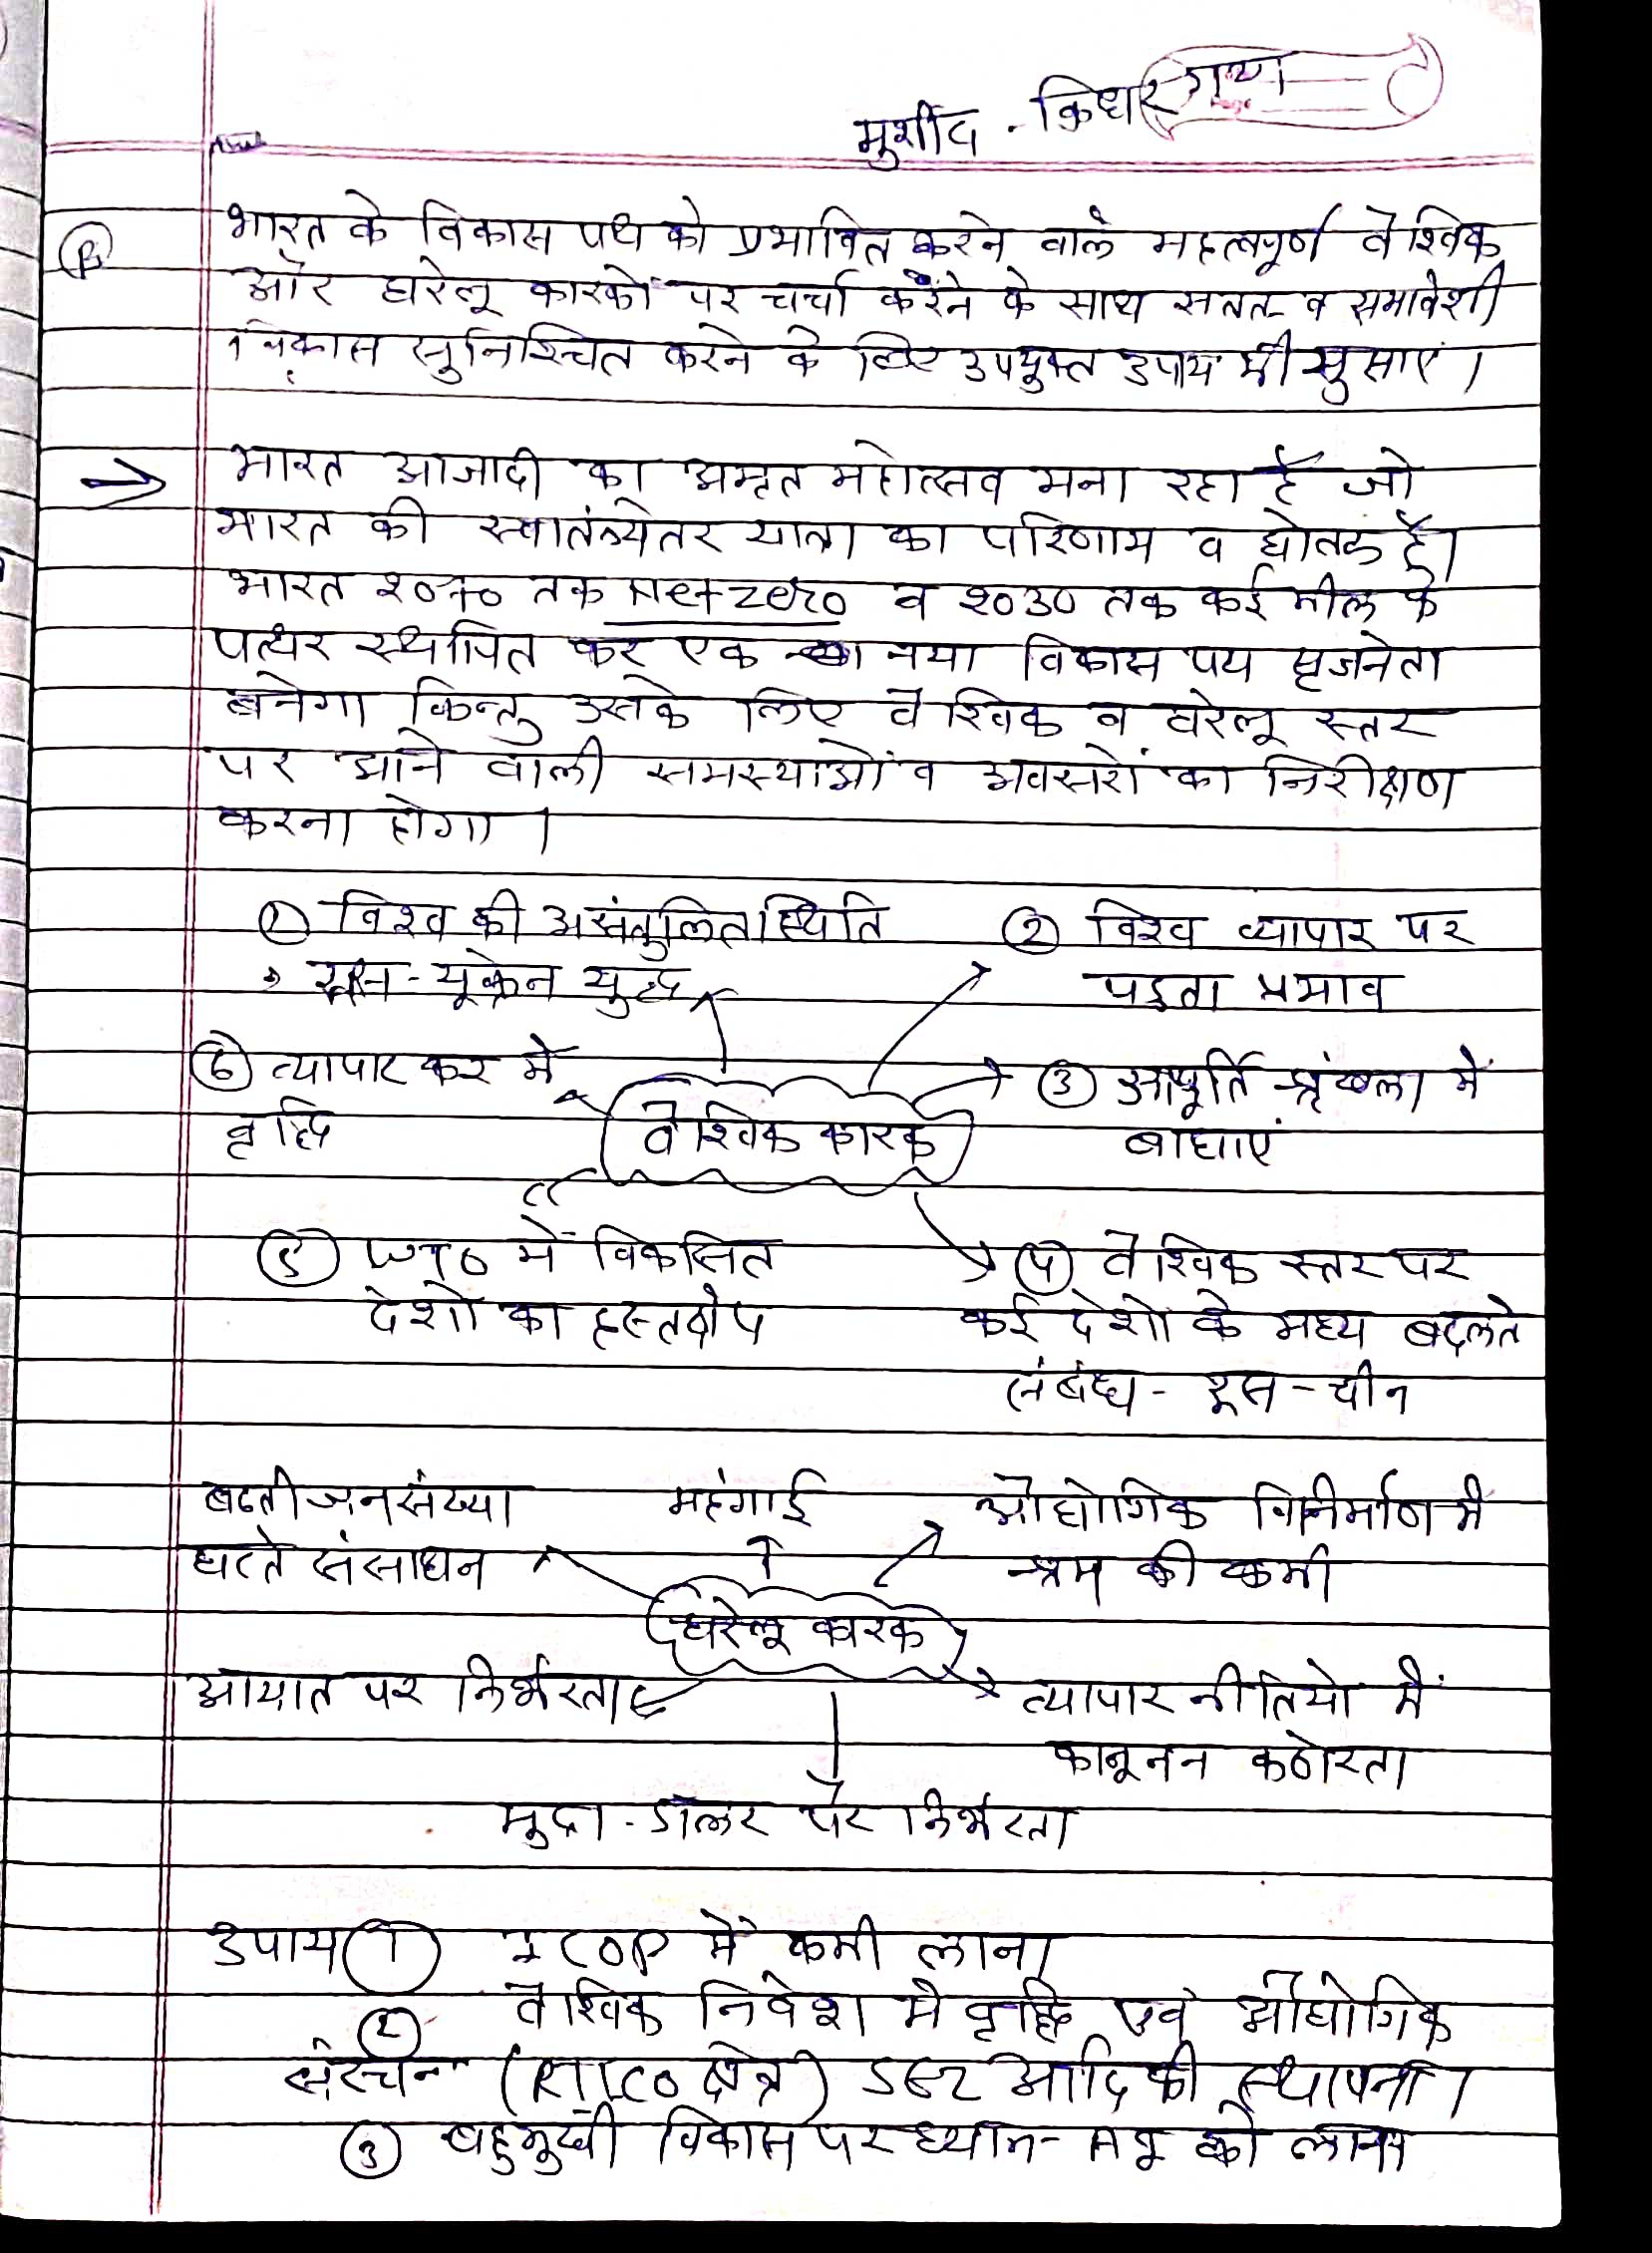 मुर्शीद - किधर गया
भारत के विकास पथ को प्रभावित करने वाले महत्वपूर्ण वैश्विक
और घरेलू कारकों पर चर्चा करने के साथ सतत व समावेशी
विकास सुनिश्चित करने के लिए उपयुक्त उपाय भी सुझाएं।
→ भारत आजादी का अमृत महोत्सव मना रहा है जो
भारत की स्वातंत्र्येतर यात्रा का परिणाम व द्योतक है।
भारत 2070 तक Net zero व 2030 तक कई मील के
पत्थर स्थापित कर एक नया विकास पथ सृजनेता
बनेगा किन्तु उसके लिए वैश्विक व घरेलू स्तर
पर आने वाली समस्याओं व अवसरों का निरीक्षण
करना होगा।
① विश्व की असंतुलित स्थिति
रूस-यूक्रेन युद्ध
② विश्व व्यापार पर
पड़ता प्रभाव
⑥ व्यापार कर में
वृद्धि
वैश्विक कारक
③ आपूर्ति श्रृंखला में
बाधाएं
⑤ WTO में विकसित
देशों का हस्तक्षेप
④ वैश्विक स्तर पर
कई देशों के मध्य बदलते
संबंध - रूस - चीन
बढती जनसंख्या
घटते संसाधन
महंगाई
औद्योगिक विनिर्माण में
श्रम की कमी
घरेलू कारक
आयात पर निर्भरता
व्यापार नीतियों में
कानूनन कठोरता
मुद्रा - डॉलर पर निर्भरता
उपाय ① ICOR में कमी लाना
② वैश्विक निवेश में वृद्धि एवं औद्योगिक
संरचना (RIICO क्षेत्र) SEZ आदि की स्थापना।
③ बहुमुखी विकास पर ध्यान - को लाना